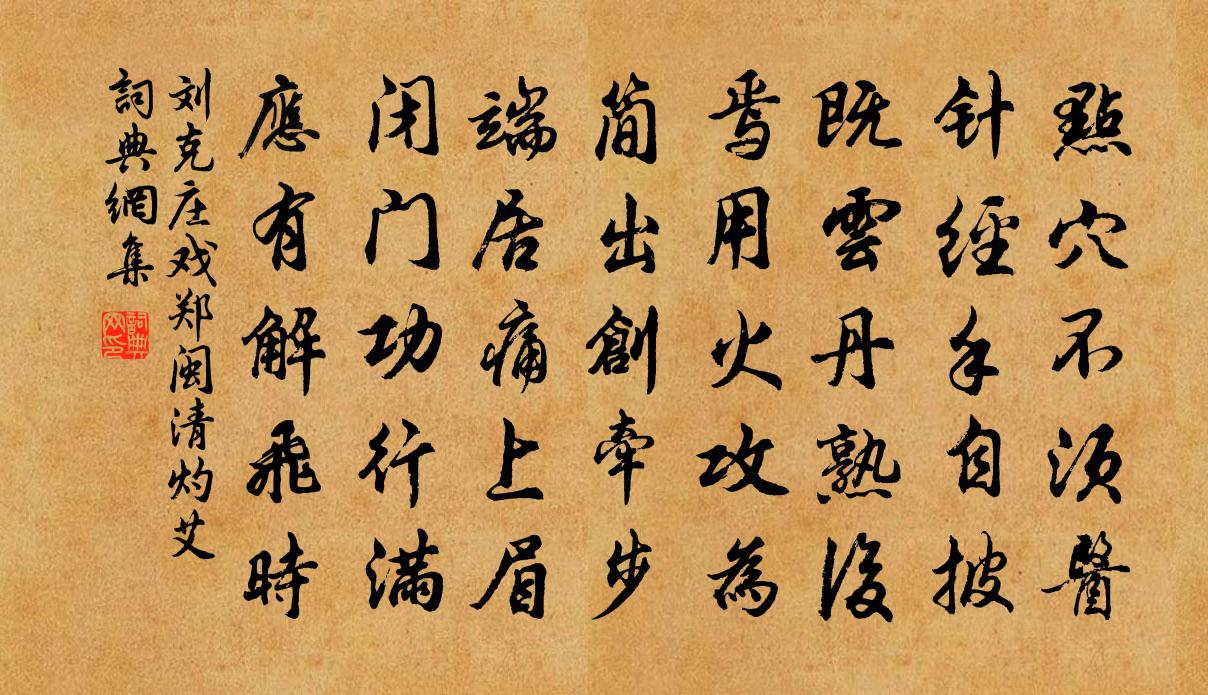 點穴不须醫
针經手自披
既雲丹熟後
焉用火攻為
简出創牽步
端居痛上眉
闭门功行满
應有解飛時
刘克庄戏郑闽清灼艾
詞典網集
詞典網印